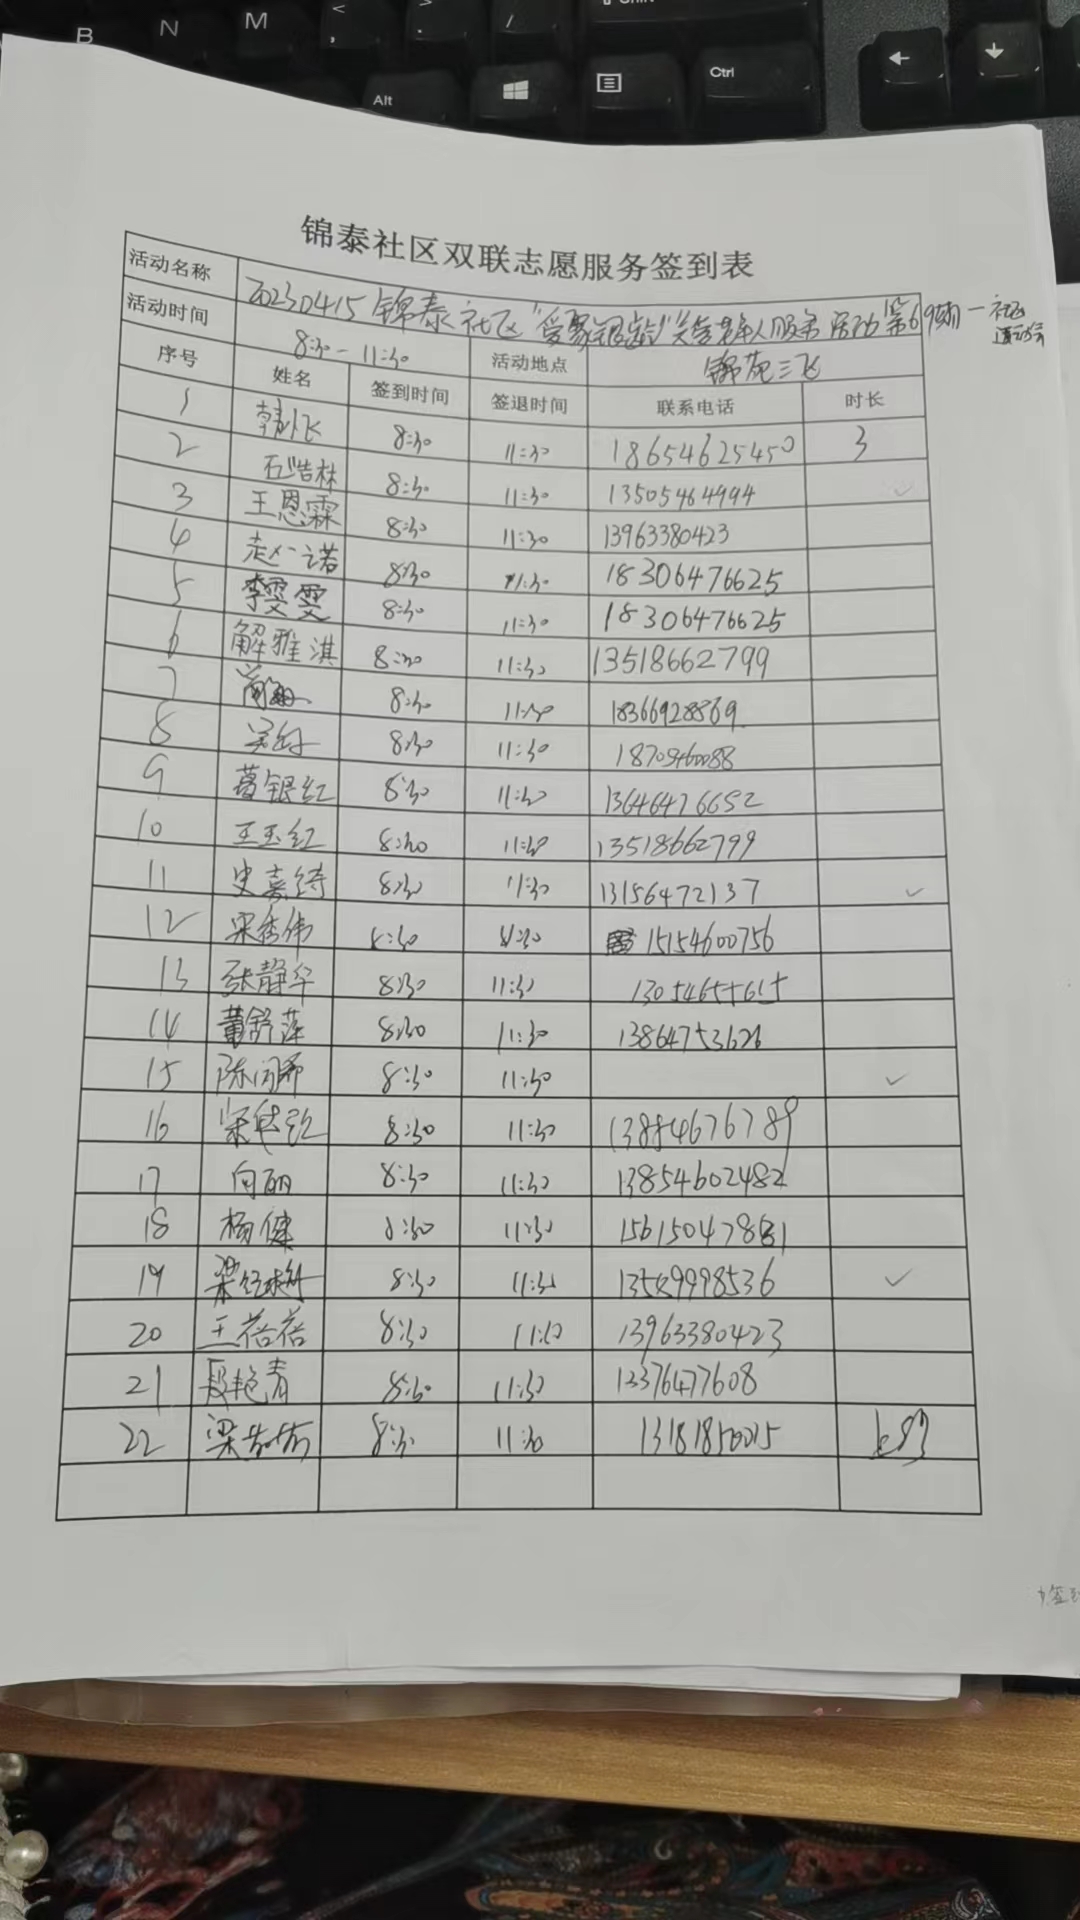 B N M < , > . / ⇧ Shift
Alt Ctrl ← ↓
锦泰社区双联志愿服务签到表
活动名称 20230415 锦泰社区"爱聚银龄"关爱老年人服务活动第69期一社区运动会
活动时间 8:30-11:30 活动地点 锦苑三区
序号 姓名 签到时间 签退时间 联系电话 时长
1 韩飞 8:30 11:30 18654625450 3
2 石浩林 8:30 11:30 13505464994
3 王恩霖 8:30 11:30 13963380423
4 赵一诺 8:30 11:30 18306476625
5 李雯雯 8:30 11:30 18306476625
6 解雅淇 8:30 11:30 13518662799
7 8:30 11:30 18366928869
8 8:30 11:30
9 葛银红 8:30 11:30 13646476652
10 王玉红 8:30 11:30 13518662799
11 史嘉绮 8:30 11:30 13156472137 ✓
12 宋秀伟 8:30 11:30 15154600756
13 张静华 8:30 11:30 13054655615
14 董舒萍 8:30 11:30
15 陈闵希 8:30 11:30 ✓
16 8:30 11:30 13854676789
17 向丽 8:30 11:30 13854602482
18 杨健 8:30 11:30
19 8:30 11:30 ✓
20 王蓓蓓 8:30 11:30 13963380423
21 段艳青 8:30 11:30 13376477608
22 8:30 11:30